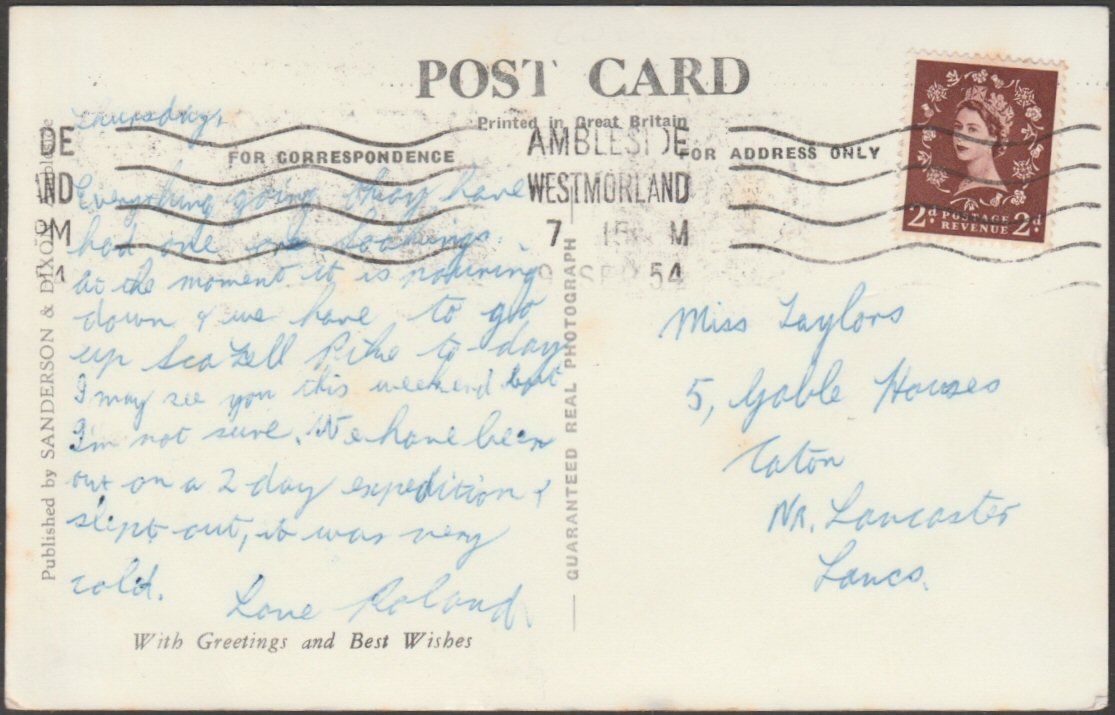 POST CARD
Printed in Great Britain
FOR CORRESPONDENCE
FOR ADDRESS ONLY
AMBLESIDE
WESTMORLAND
7 15 M
9 SEP 54
DE
AND
M
2d POSTAGE 2d
REVENUE
Thursday,
Everything going Okay have
had one or soakings.
at the moment it is pouring
down & we have to go
up Sca Fell Pike to-day
I may see you this weekend but
I'm not sure. We have been
out on a 2 day expedition &
slept out, it was very
cold.
Love Roland
With Greetings and Best Wishes
Published by SANDERSON & DIXON
GUARANTEED REAL PHOTOGRAPH
Miss Taylors
5, Gable Houses
Caton
NR. Lancaster
Lancs.